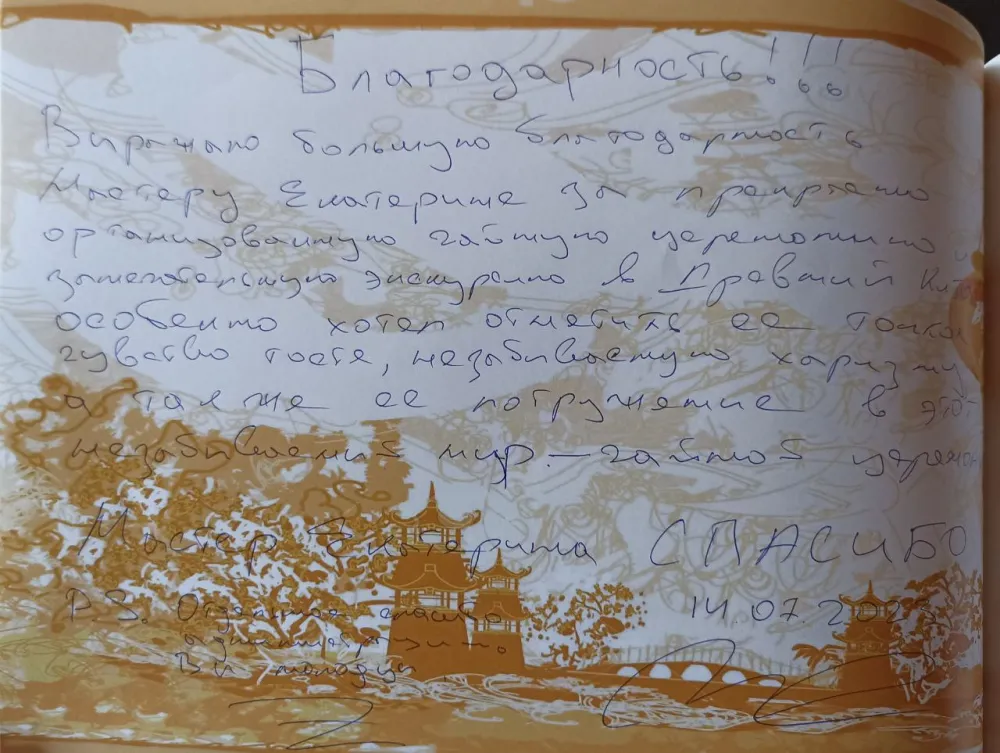 Благодарность!!!
Выражаю большую благодарность
Мастеру Екатерине за прекрасно
организованную чайную церемонию и
замечательную экскурсию в Древний Кита
особенно хотел отметить ее тонкое
чувство гостя, незабываемую харизму
а так же ее погружение в этот
незабываемый мир – чайной церемон
Мастер Екатерина СПАСИБО
P.S. Отдельное спасибо 14.07.2023
Вы молодцы